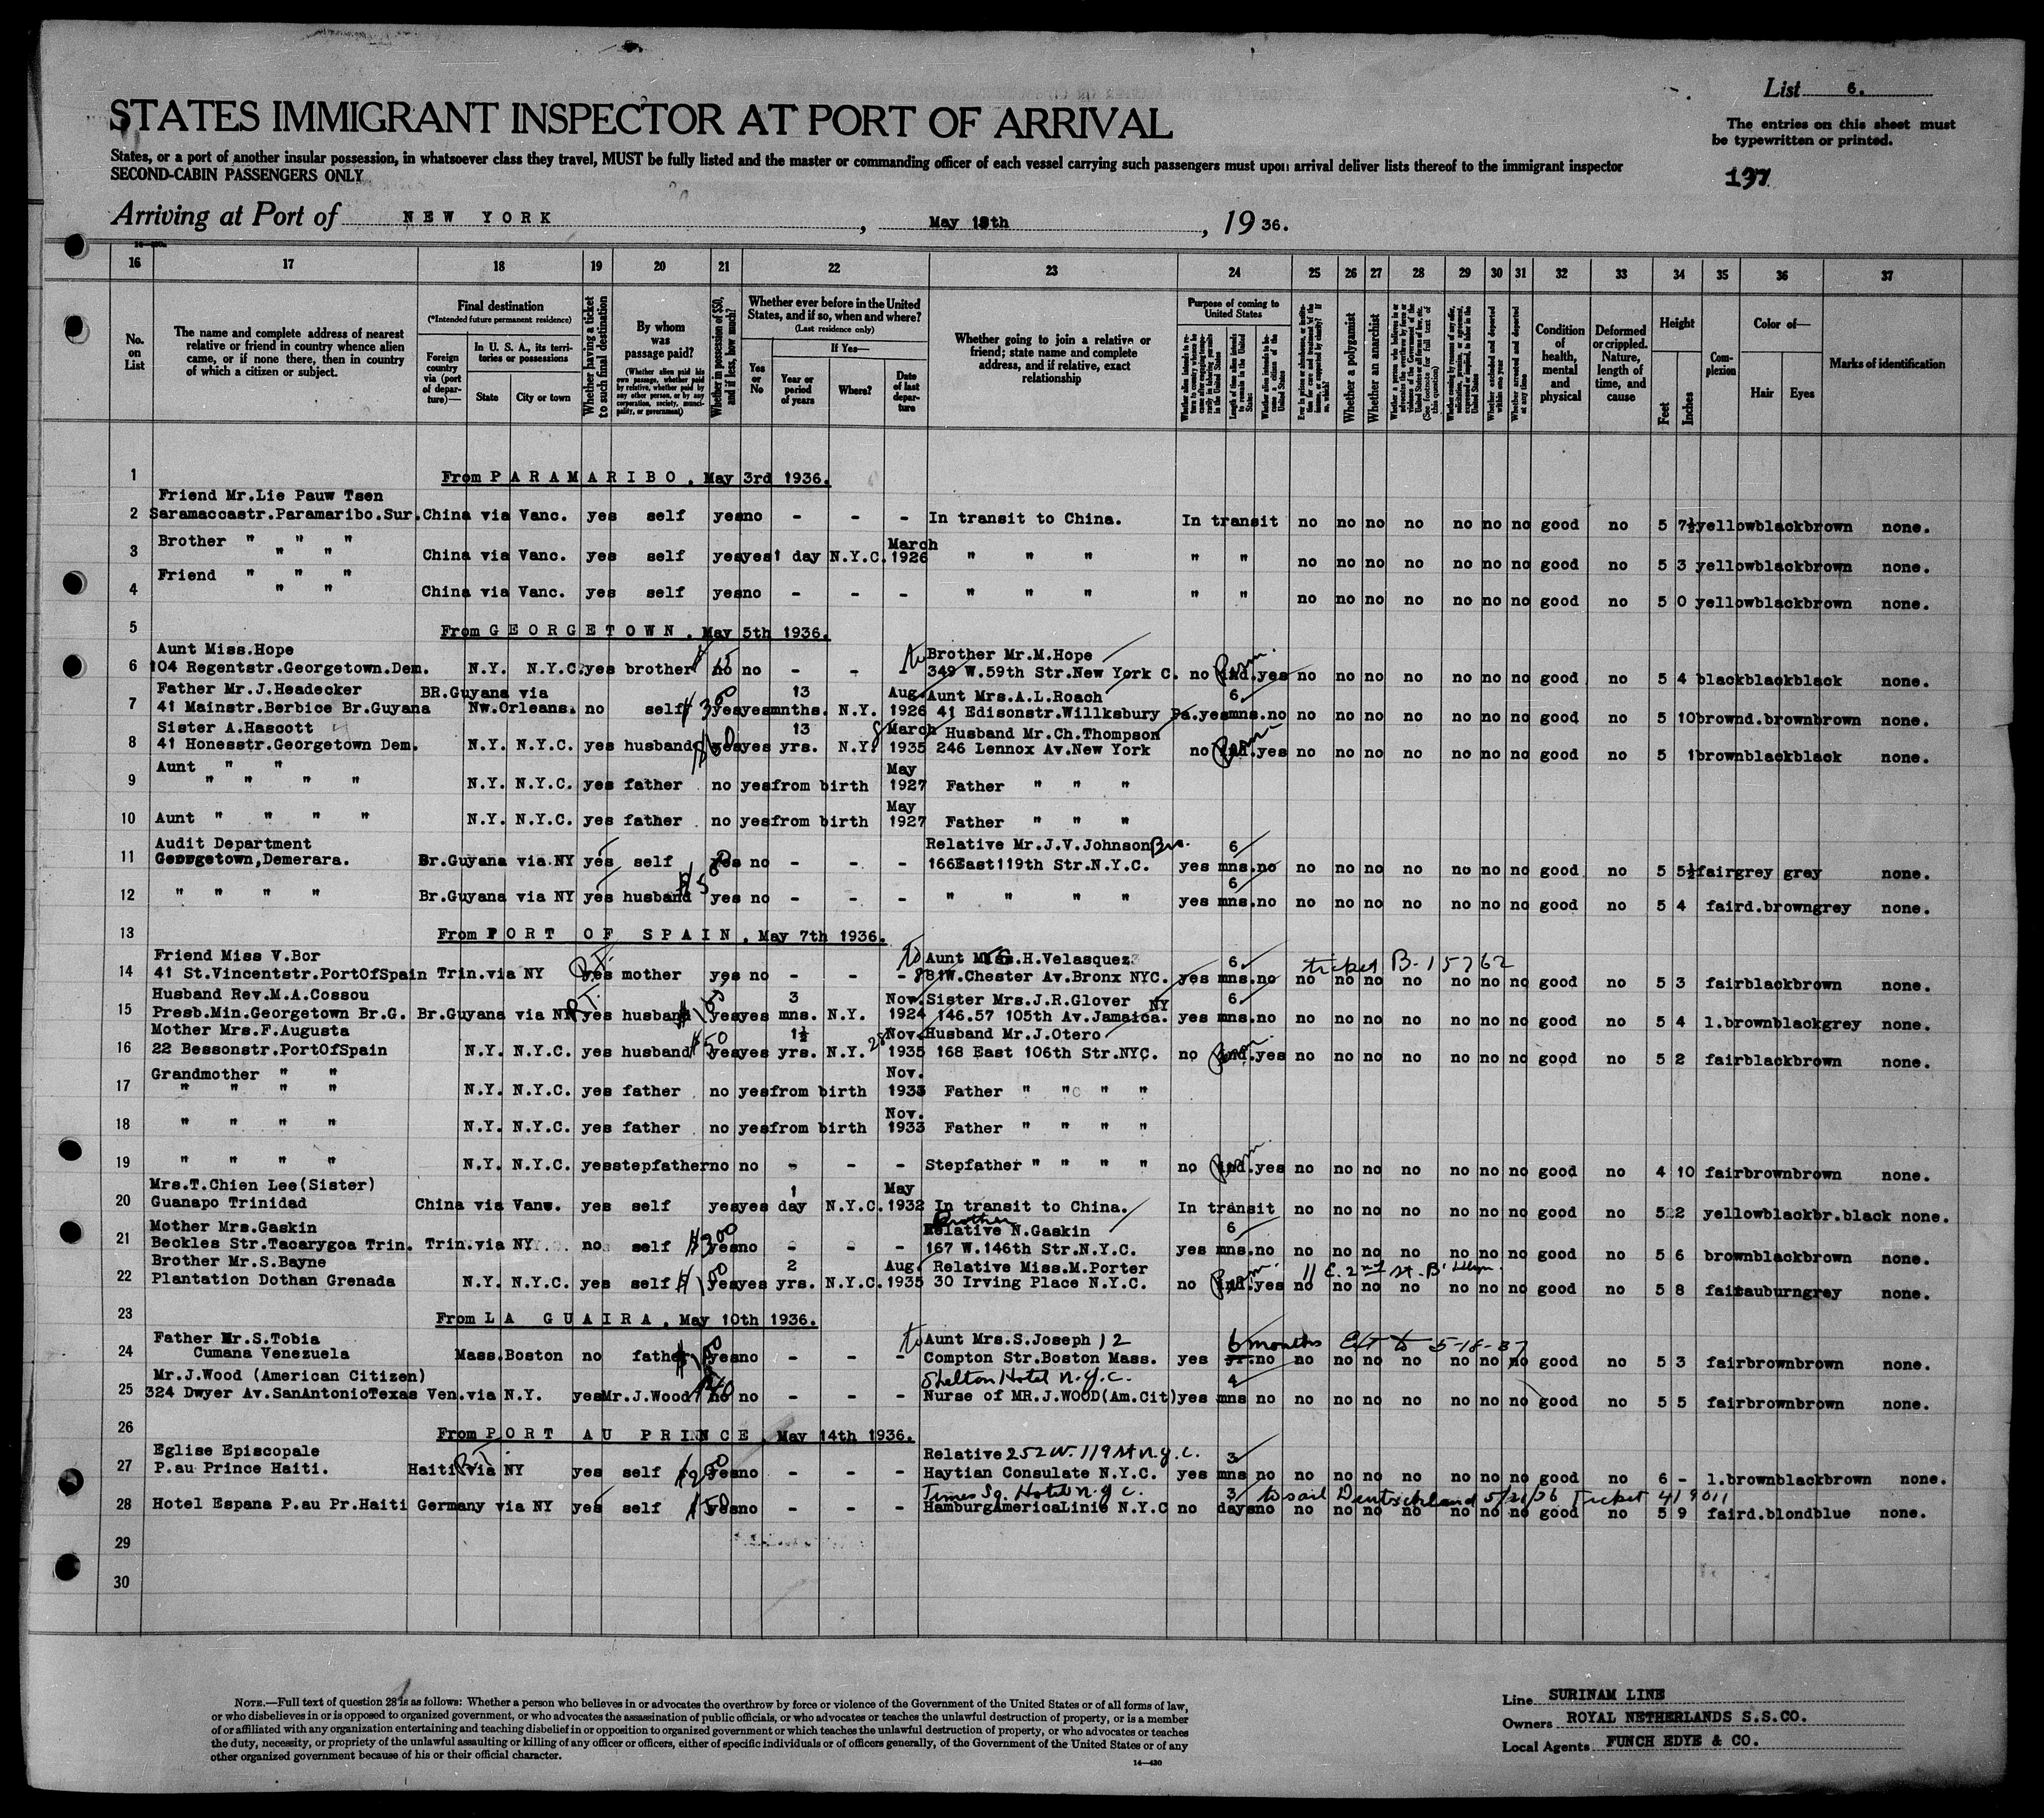 List 6.
STATES IMMIGRANT INSPECTOR AT PORT OF ARRIVAL
The entries on this sheet must
be typewritten or printed.
States, or a port of another insular possession, in whatsoever class they travel, MUST be fully listed and the master or commanding officer of each vessel carrying such passengers must upon arrival deliver lists thereof to the immigrant inspector
SECOND-CABIN PASSENGERS ONLY
137
Arriving at Port of NEW YORK, May 19th, 1936.
16 17 18 19 20 21 22 23 24 25 26 27 28 29 30 31 32 33 34 35 36 37
No. on List
The name and complete address of nearest relative or friend in country whence alien came, or if none there, then in country of which a citizen or subject.
Final destination
(*Intended future permanent residence)
Foreign country via (port of departure)—
In U. S. A., its territories or possessions
State
City or town
Whether having a ticket to such final destination
By whom was passage paid?
(Whether alien paid his own passage, whether paid by relative, whether paid by any other person, or by any corporation, society, municipality, or government)
Whether in possession of $50, and if less, how much?
Whether ever before in the United States, and if so, when and where?
(Last residence only)
Yes or No
If Yes—
Year or period of years
Where?
Date of last departure
Whether going to join a relative or friend; state name and complete address, and if relative, exact relationship
Purpose of coming to United States
Whether a polygamist
Whether an anarchist
Whether excluded and deported within one year
Whether arrested and deported at any time
Condition of health, mental and physical
Deformed or crippled. Nature, length of time, and cause
Height
Feet
Inches
Complexion
Color of—
Hair
Eyes
Marks of identification
1 From PARAMARIBO. May 3rd 1936.
Friend Mr.Lie Pauw Tsen
2 Saramaccastr.Paramaribo.Sur. China via Vanc. yes self yes no - - - In transit to China. In transit no no no no no no no good no 5 7½ yellow black brown none.
Brother " " " March
3 " " China via Vanc. yes self yes yes 1 day N.Y.C. 1926 " " " " " no no no no no no no good no 5 3 yellow black brown none.
Friend " " "
4 " " China via Vanc. yes self yes no - - - " " " " " no no no no no no no good no 5 0 yellow black brown none.
5 From GEORGETOWN. May 5th 1936.
Aunt Miss.Hope Brother Mr.M.Hope Perm.
6 104 Regentstr.Georgetown.Dem. N.Y. N.Y.C. yes brother no no - - - 349 W.59th Str.New York C. no ind. yes no no no no no no no good no 5 4 black black black none.
Father Mr.J.Headecker BR.Guyana via 13 Aug. Aunt Mrs.A.L.Roach 6
7 41 Mainstr.Berbice Br.Guyana Nw.Orleans. no self yes yes mnths. N.Y. 1926 41 Edisonstr.Willksbury Pa. yes mns. no no no no no no no no good no 5 10 brown d.brown brown none.
Sister A.Hascott 13 8 March Husband Mr.Ch.Thompson Perm
8 41 Honesstr.Georgetown Dem. N.Y. N.Y.C. yes husband yes yes yrs. N.Y. 1935 246 Lennox Av.New York no ind. yes no no no no no no no good no 5 1 brown black black none.
Aunt " " May
9 " " " " N.Y. N.Y.C. yes father no yes from birth 1927 Father " " "
May
10 Aunt " " " " N.Y. N.Y.C. yes father no yes from birth 1927 Father " " "
Audit Department Relative Mr.J.V.Johnson Bro. 6
11 Georgetown,Demerara. Br.Guyana via NY yes self yes no - - - 166East119th Str.N.Y.C. yes mns. no no no no no no no no good no 5 5½ fair grey grey none.
6
12 " " " " Br.Guyana via NY yes husband yes no - - - " " " " yes mns. no no no no no no no no good no 5 4 fair d.brown grey none.
13 From PORT OF SPAIN. May 7th 1936.
Friend Miss V.Bor R.T. To Aunt H.Velasquez 6 ticket B-15762
14 41 St.Vincentstr.PortOfSpain Trin.via NY yes mother yes no - - - 881W.Chester Av.Bronx NYC. yes mns. no no no no no no no no good no 5 3 fair black brown none.
Husband Rev.M.A.Cossou R.T. 3 Nov. Sister Mrs.J.R.Glover NY 6
15 Presb.Min.Georgetown Br.G. Br.Guyana via NY yes husband yes yes mns. N.Y. 1924 146.57 105th Av.Jamaica. yes mns. no no no no no no no no good no 5 4 l.brown black grey none.
Mother Mrs.F.Augusta $50 1½ 28 Nov. Husband Mr.J.Otero Perm.
16 22 Bessonstr.PortOfSpain N.Y. N.Y.C. yes husband yes yes yrs. N.Y. 1935 168 East 106th Str.NYC. no ind. yes no no no no no no no good no 5 2 fair black brown none.
Grandmother " " Nov.
17 " " " " N.Y. N.Y.C. yes father no yes from birth 1933 Father " " " "
Nov.
18 " " " " N.Y. N.Y.C. yes father no yes from birth 1933 Father " " " "
Perm
19 " " " " N.Y. N.Y.C. yes stepfather no no - - - Stepfather " " " " no ind. yes no no no no no no no good no 4 10 fair brown brown none.
Mrs.T.Chien Lee(Sister) 1 May
20 Guanapo Trinidad China via Vanv. yes self yes yes day N.Y.C. 1932 In transit to China. In transit no no no no no no no good no 5 2 yellow black br.black none.
Mother Mrs.Gaskin $300 Brother Relative N.Gaskin 6
21 Beckles Str.Tacarygoa Trin. Trin.via NY no self yes no - - - 167 W.146th Str.N.Y.C. yes mns. no no no no no no no no good no 5 6 brown black brown none.
Brother Mr.S.Bayne 2 Aug. Relative Miss.M.Porter Perm. 11 E. 2nd St. B'klyn.
22 Plantation Dothan Grenada N.Y. N.Y.C. yes self yes yes yrs. N.Y.C. 1935 30 Irving Place N.Y.C. no ind. yes no no no no no no no good no 5 8 fair auburn grey none.
23 From LA GUAIRA. May 10th 1936.
Father Mr.S.Tobia to Aunt Mrs.S.Joseph 12 6 months Ext to 5-18-37
24 Cumana Venezuela Mass. Boston no father yes no - - - Compton Str.Boston Mass. yes no no no no no no no no good no 5 3 fair brown brown none.
Mr.J.Wood (American Citizen) Shelton Hotel N.Y.C. 4
25 324 Dwyer Av.SanAntonioTexas Ven.via N.Y. yes Mr.J.Wood no no - - - Nurse of MR.J.WOOD(Am.Cit) yes mns no no no no no no no no good no 5 5 fair brown brown none.
26 From PORT AU PRINCE. May 14th 1936.
Eglise Episcopale R.T. Relative 252 W. 119 St N.Y.C. 3
27 P.au Prince Haiti. Haiti via NY yes self yes no - - - Haytian Consulate N.Y.C. yes mns no no no no no no no no good no 6 - l.brown black brown none.
Times Sq. Hotel N.Y.C. 3 to sail Deutschland 5/21/36 Ticket 419011
28 Hotel Espana P.au Pr.Haiti Germany via NY yes self $50 yes no - - - HamburgAmericaLinie N.Y.C no days no no no no no no no no good no 5 9 fair d.blond blue none.
29
30
NOTE.—Full text of question 28 is as follows: Whether a person who believes in or advocates the overthrow by force or violence of the Government of the United States or of all forms of law,
or who disbelieves in or is opposed to organized government, or who advocates the assassination of public officials, or who advocates or teaches the unlawful destruction of property, or is a member
of or affiliated with any organization entertaining and teaching disbelief in or opposition to organized government or which teaches the unlawful destruction of property, or who advocates or teaches
the duty, necessity, or propriety of the unlawful assaulting or killing of any officer or officers, either of specific individuals or of officers generally, of the Government of the United States or of any
other organized government because of his or their official character.
14—430
Line SURINAM LINE
Owners ROYAL NETHERLANDS S.S.CO.
Local Agents FUNCH EDYE & CO.